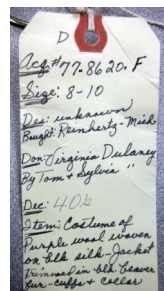 D
Acq# 77.8620.F
Size: 8-10
Des: unknown
Bought: Reinhertz - Mich
Don: Virginia Dulaney
By Tom & Sylvia "
Dec: 40s
Item: Costume of
Purple wool woven
on blk silk - Jacket
trimmed in blk beaver
fur - cuffs & collar